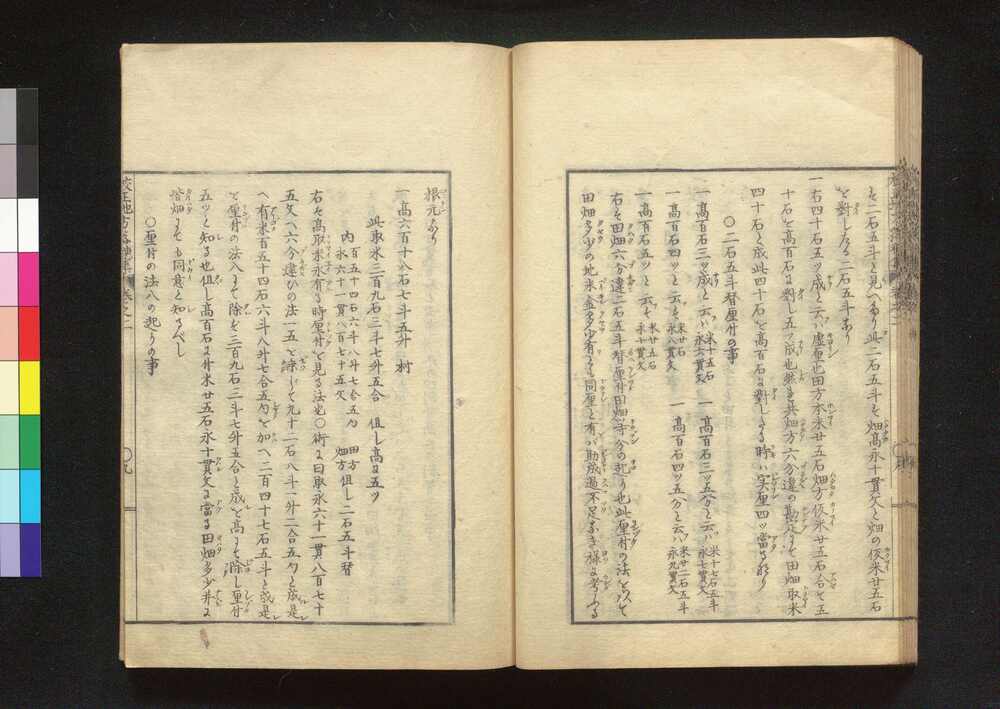 を二石五斗と見へるり此二石五斗を畑高永十貫文と畑の仮米廿五石
と對したる二石五斗あり
一右四十石五ッ成と云ハ虚厘也田方本米廿五石畑方仮米廿五石合を五
十石を高百石に對し五ッ成也然を共畑方六分違の勘定にて田畑取米
四十石と成此四十石を高百石に對しる時ハ実厘四ッ當るなり
〇二石五斗替厘付の事
一高百石三ッ成と云ハ米十五石永六貫文 一高百石三ッ五分と云ハ米十七石五斗永七貫文
一高百石四ッと云を米廿石永八貫文 一高百石四ッ五分と云ハ米廿二石五斗永九貫文
一高百石五ッと云を米廿五石永十貫文
右を田畑六分違二石五斗替厘付田畑等分の起り也此厘付の法を以て
田畑多少の地米金多少有ても同厘と有バ助成過不足なき様に考へる
根元なり
一高六百十八石七斗五升 村
此取米三百九石三斗七升五合 但し高に五ッ
内 百五十四石六斗八升七合五勺 田方
永六十一貫八百七十五文 畑方但し二石五斗替
右を高取米永有る時厘付を見る法也〇術に曰取永六十一貫八百七十
五文へ六分違ひの法一五を乗じて九十二石八斗一升二合五勺と成是
へ有米百五十四石六斗八升七合五勺を加へ二百四十七石五斗と成是
を厘付の法八にて除き三百九石三斗七升五合と成を高にて除し厘付
五ッと知る也但し高百石に付米廿五石永十貫文に當る田畑多少并に
皆畑にても同意と知るべし
〇厘付の法八の起りの事
校正地方落穂集 巻之二
〇九